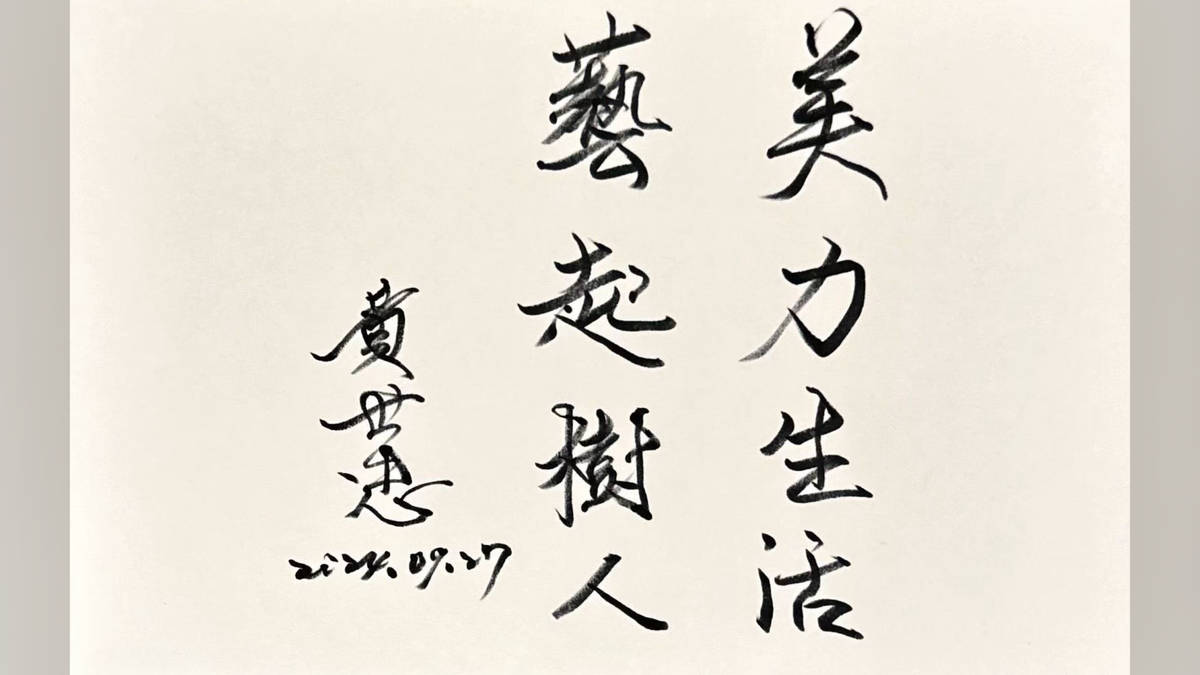 美力生活
藝起樹人
2024.09.27